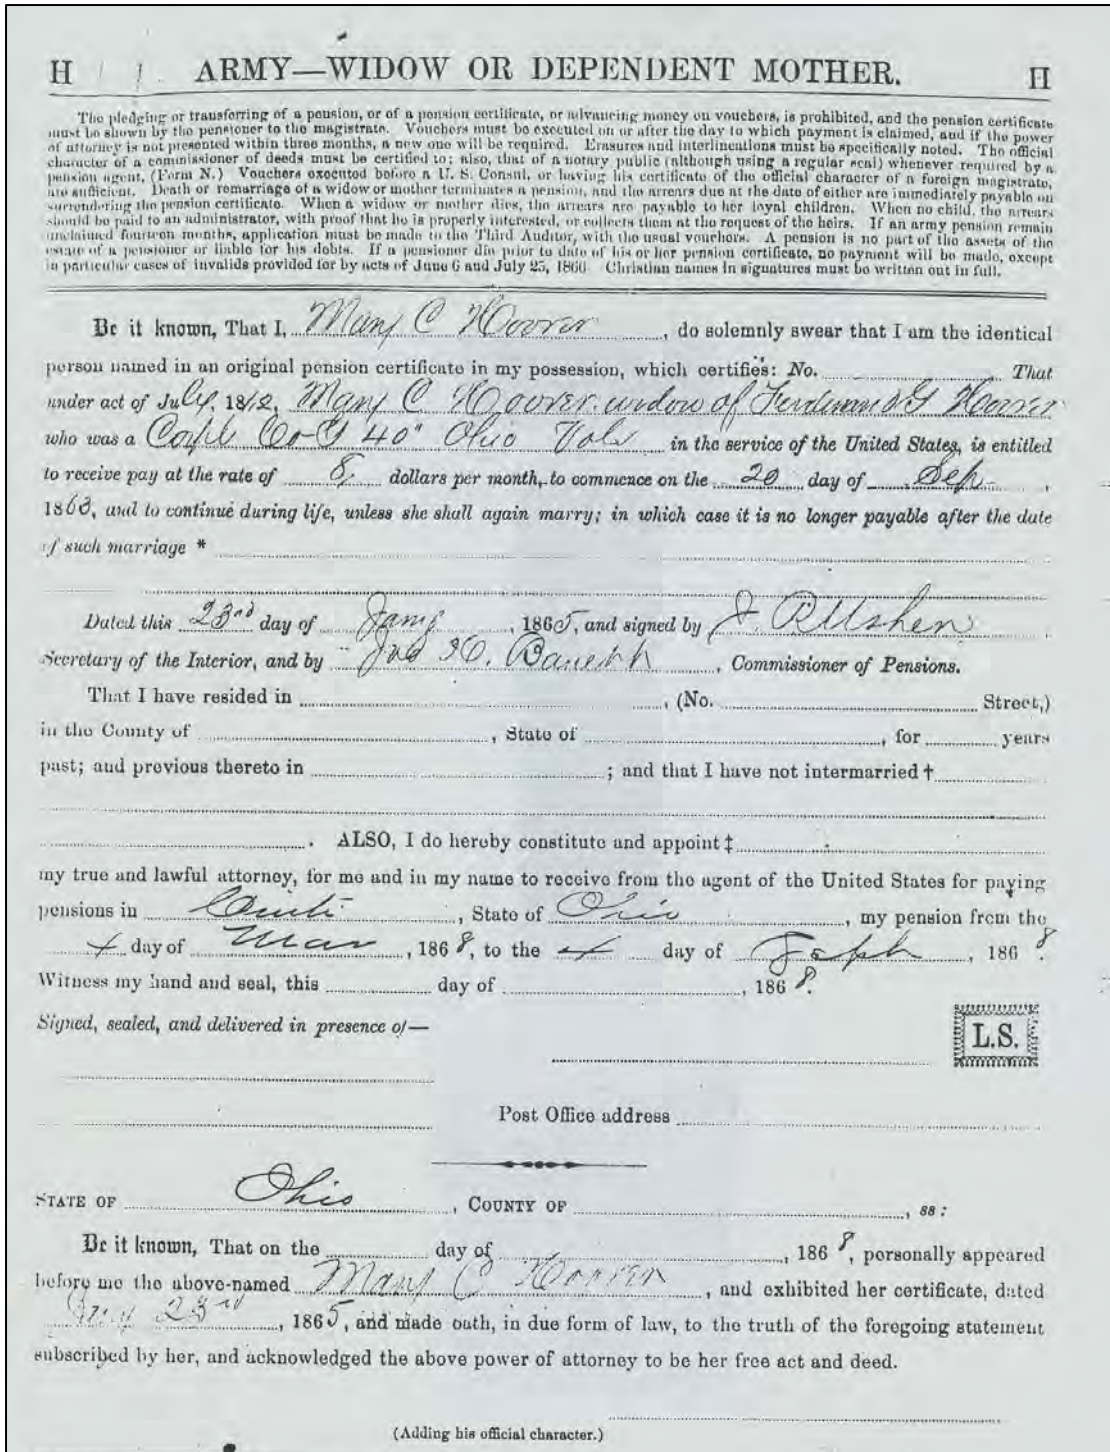 H ARMY—WIDOW OR DEPENDENT MOTHER. H
The pledging or transferring of a pension, or of a pension certificate, or advancing money on vouchers, is prohibited, and the pension certificate
must be shown by the pensioner to the magistrate. Vouchers must be executed on or after the day to which payment is claimed, and if the power
of attorney is not presented within three months, a new one will be required. Erasures and interlineations must be specifically noted. The official
character of a commissioner of deeds must be certified to; also, that of a notary public (although using a regular seal) whenever required by a
pension agent, (Form N.) Vouchers executed before a U. S. Consul, or having his certificate of the official character of a foreign magistrate,
are sufficient. Death or remarriage of a widow or mother terminates a pension, and the arrears due at the date of either are immediately payable on
surrendering the pension certificate. When a widow or mother dies, the arrears are payable to her loyal children. When no child, the arrears
should be paid to an administrator, with proof that he is properly interested, or collects them at the request of the heirs. If an army pension remain
unclaimed fourteen months, application must be made to the Third Auditor, with the usual vouchers. A pension is no part of the assets of the
estate of a pensioner or liable for his debts. If a pensioner die prior to date of his or her pension certificate, no payment will be made, except
in particular cases of invalids provided for by acts of June 6 and July 25, 1866 Christian names in signatures must be written out in full.
Be it known, That I, Mary C Hoover, do solemnly swear that I am the identical
person named in an original pension certificate in my possession, which certifies: No. That
under act of July, 18 Mary C Hoover widow of Ferdinand G Hoover
who was a Corpl Co G 40" Ohio Vols in the service of the United States, is entitled
to receive pay at the rate of 8 dollars per month, to commence on the 20 day of Sep,
1863, and to continue during life, unless she shall again marry; in which case it is no longer payable after the date
of such marriage *
Dated this 23rd day of Jany, 1865, and signed by J. P. Usher
Secretary of the Interior, and by Jos H. Barrett, Commissioner of Pensions.
That I have resided in , (No. Street,)
in the County of , State of , for years
past; and previous thereto in ; and that I have not intermarried †
. ALSO, I do hereby constitute and appoint ‡
my true and lawful attorney, for me and in my name to receive from the agent of the United States for paying
pensions in Cinti, State of Ohio, my pension from the
4 day of Mar, 1868, to the 4 day of Seph, 1868.
Witness my hand and seal, this day of , 1868.
Signed, sealed, and delivered in presence of—
L.S.
Post Office address
STATE OF Ohio, COUNTY OF , ss:
Be it known, That on the day of , 1868, personally appeared
before me the above-named Mary C Hoover, and exhibited her certificate, dated
Jany 23rd, 1865, and made oath, in due form of law, to the truth of the foregoing statement
subscribed by her, and acknowledged the above power of attorney to be her free act and deed.
(Adding his official character.)